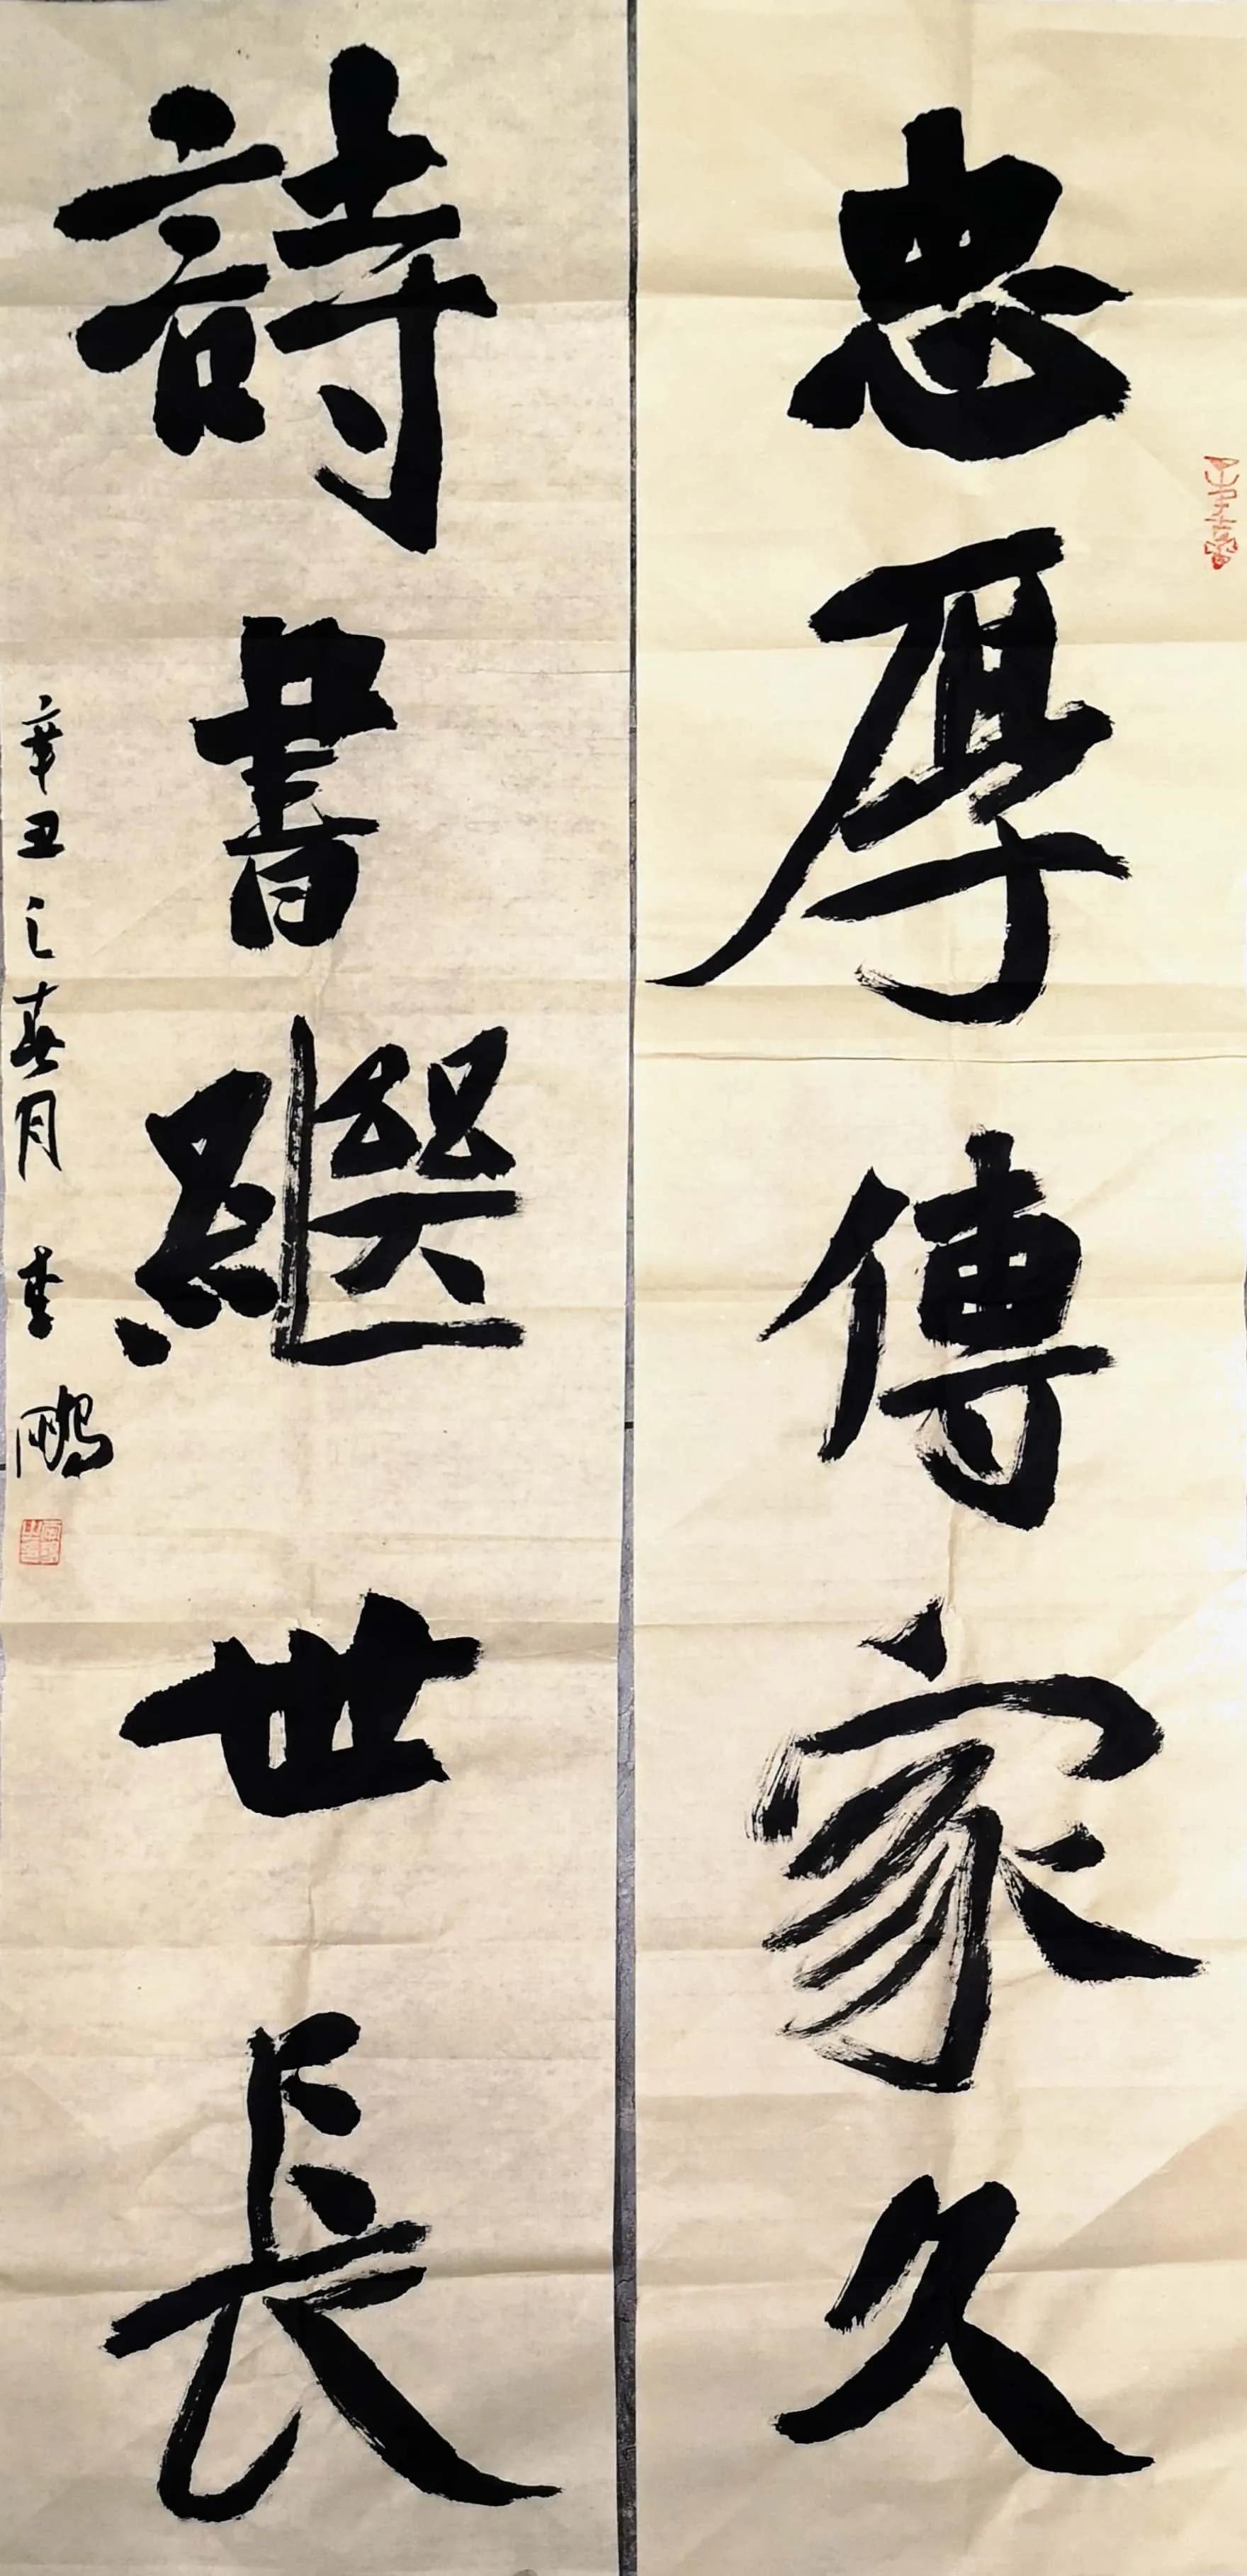 忠厚傳家久
詩書繼世長
辛丑之春月 李鵬